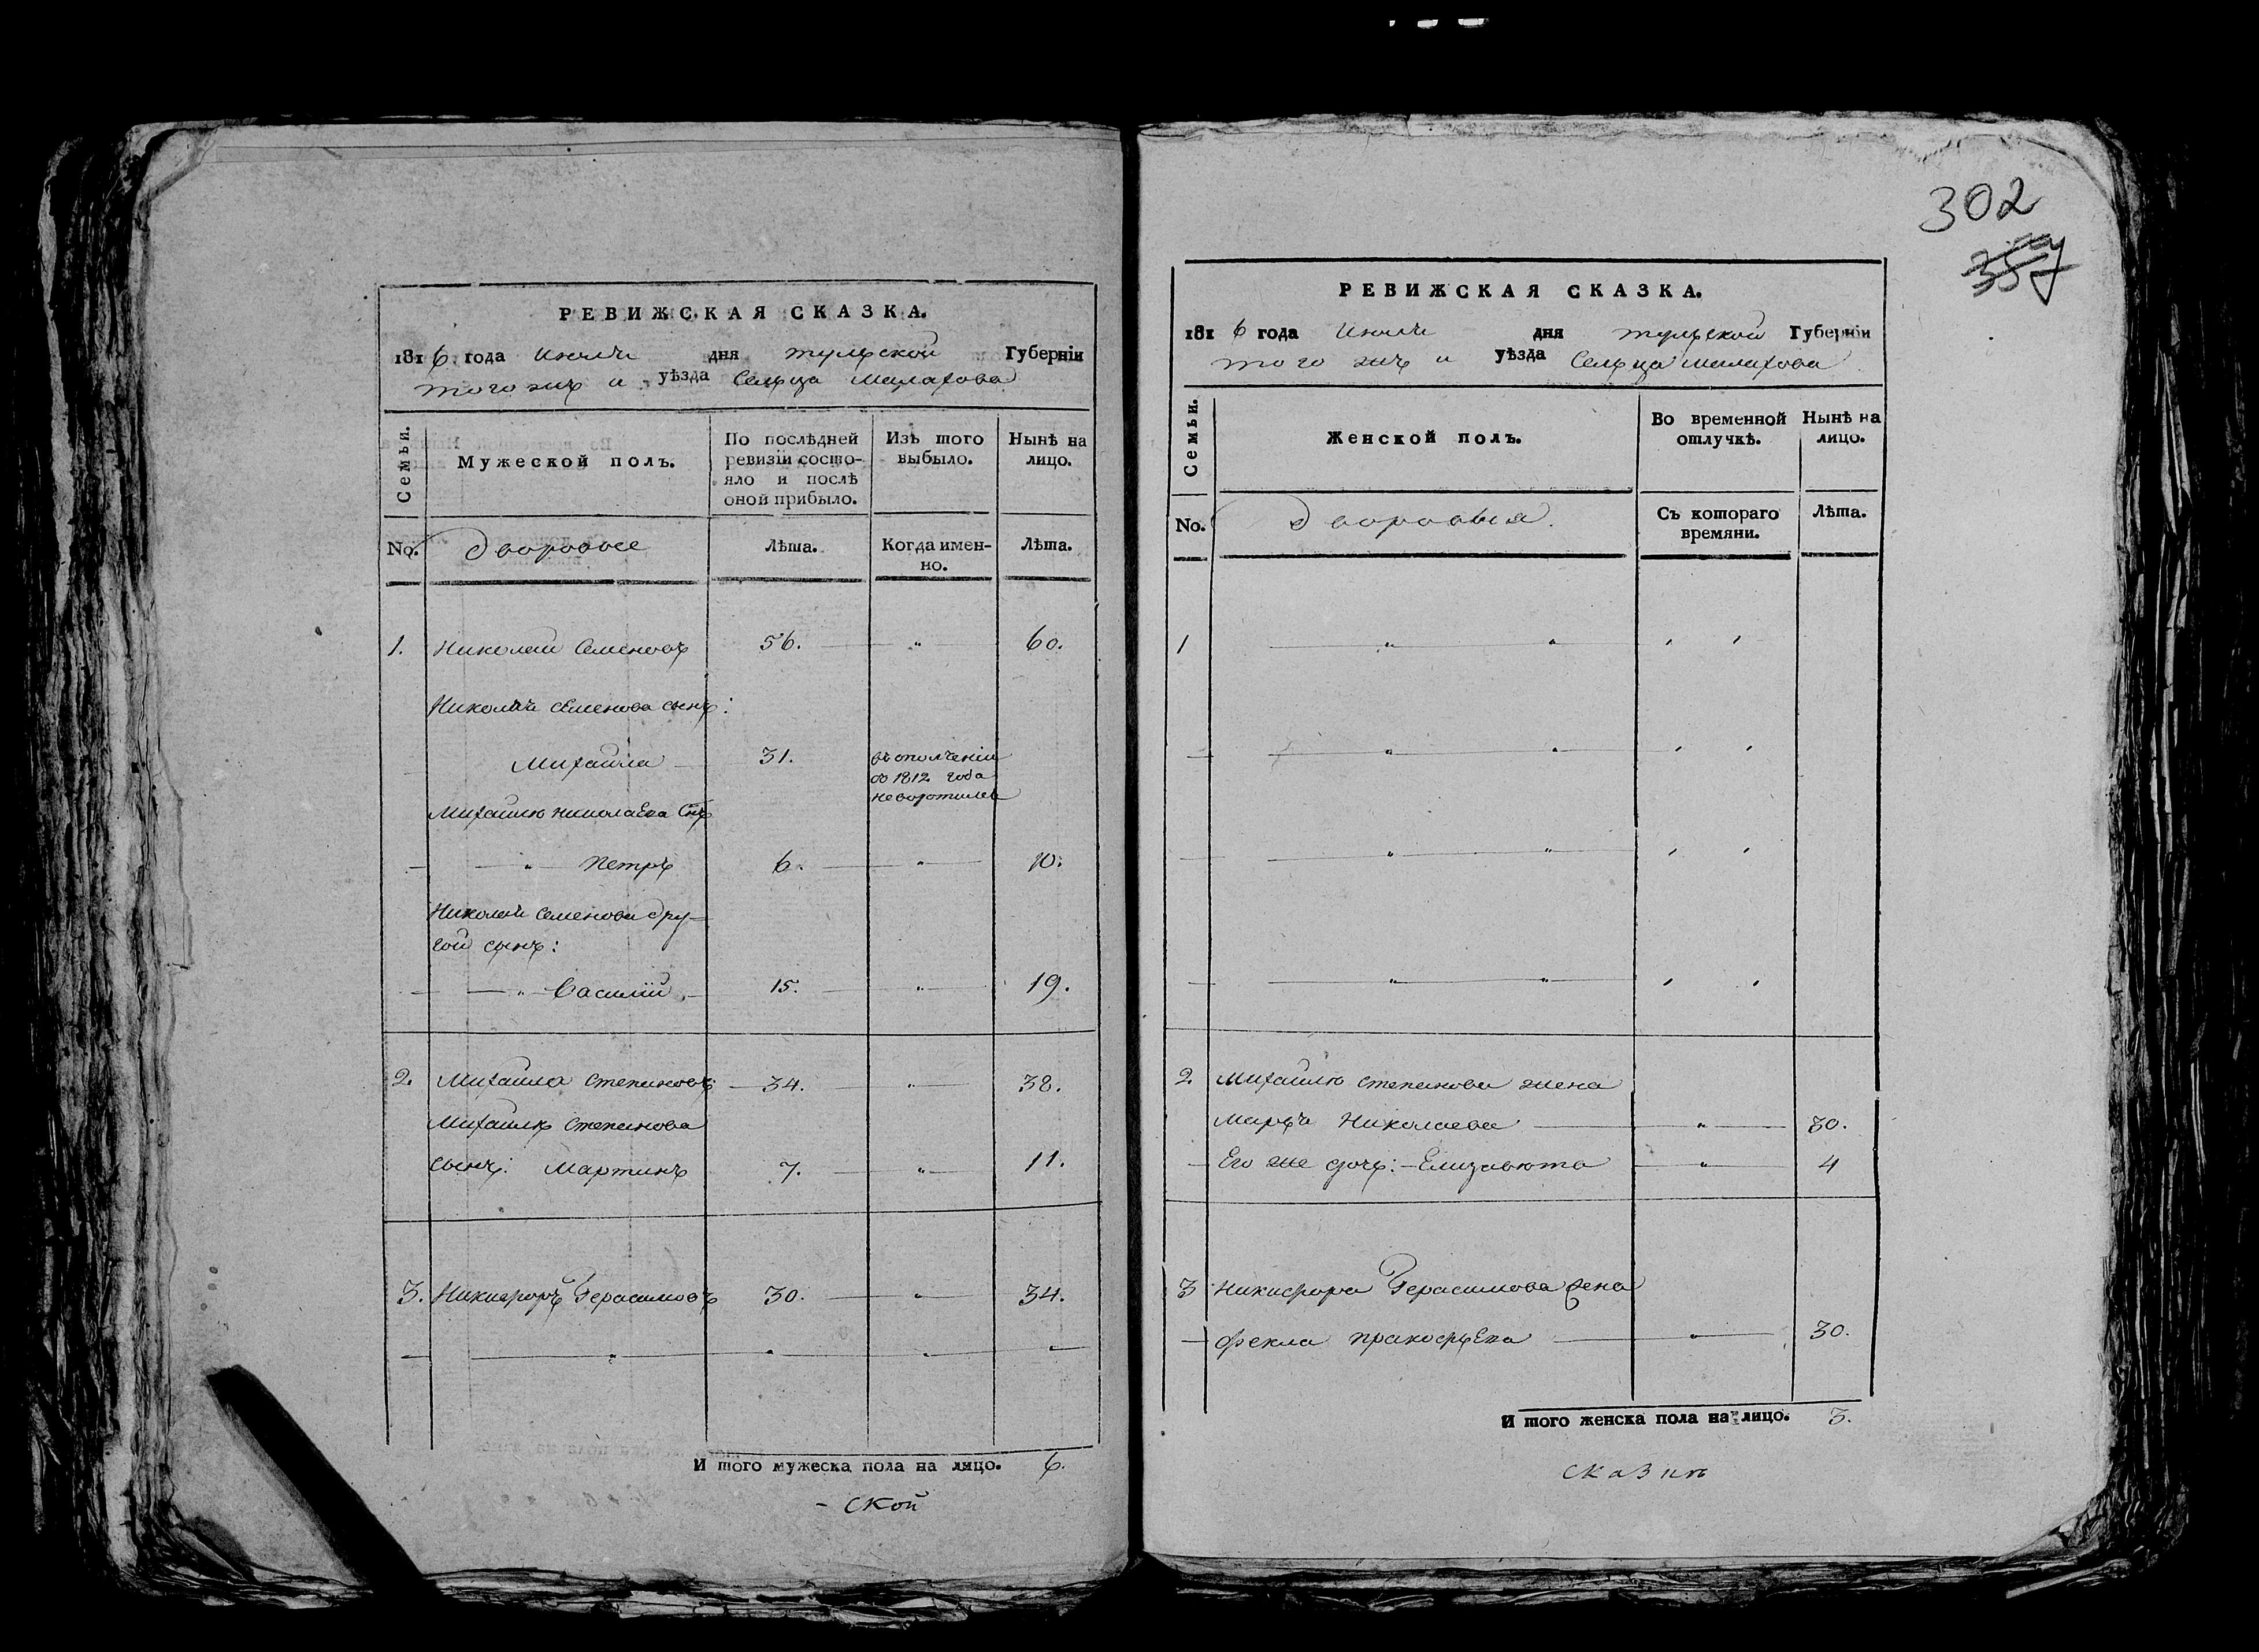 РЕВИЖСКАЯ СКАЗКА.
1816 года Июля дня тульской Губерніи
того жъ и уѣзда Сельца Малахова
Семьи. Мужеской полъ. По послѣдней ревизіи состо-яло и послѣ оной прибыло. Изъ того выбыло. Нынѣ на лицо.
No. дворовые Лѣта. Когда имен-но. Лѣта.
1. Николай Семеновъ 56. 60.
Николая Семенова сынъ:
Михайла 31. въ ополченіи
въ 1812 года
невозвратился
Михайлы Николаева Снъ
Петръ 6. 10.
Николая Семенова дру-
гой сынъ:
Василій 15. 19.
2. Михайла Степановъ 34. 38.
Михайлы Степанова
сынъ: Мартинъ 7. 11.
3. Никифоръ Герасимовъ 30. 34.
И того мужеска пола на лицо. 6.
- ской
302
357
РЕВИЖСКАЯ СКАЗКА.
1816 года Июля дня тульской Губерніи
того жъ и уѣзда Сельца Малахова
Семьи. Женской полъ. Во временной отлучкѣ. Нынѣ на лицо.
No. дворовыя. Съ котораго времяни. Лѣта.
1
2 Михайлы Степанова жена
Марья Николаева 30.
Его же дочь: Елизавета 4
3 Никифора Герасимова жена
Фекла Пракофьева 30.
И того женска пола на лицо. 3.